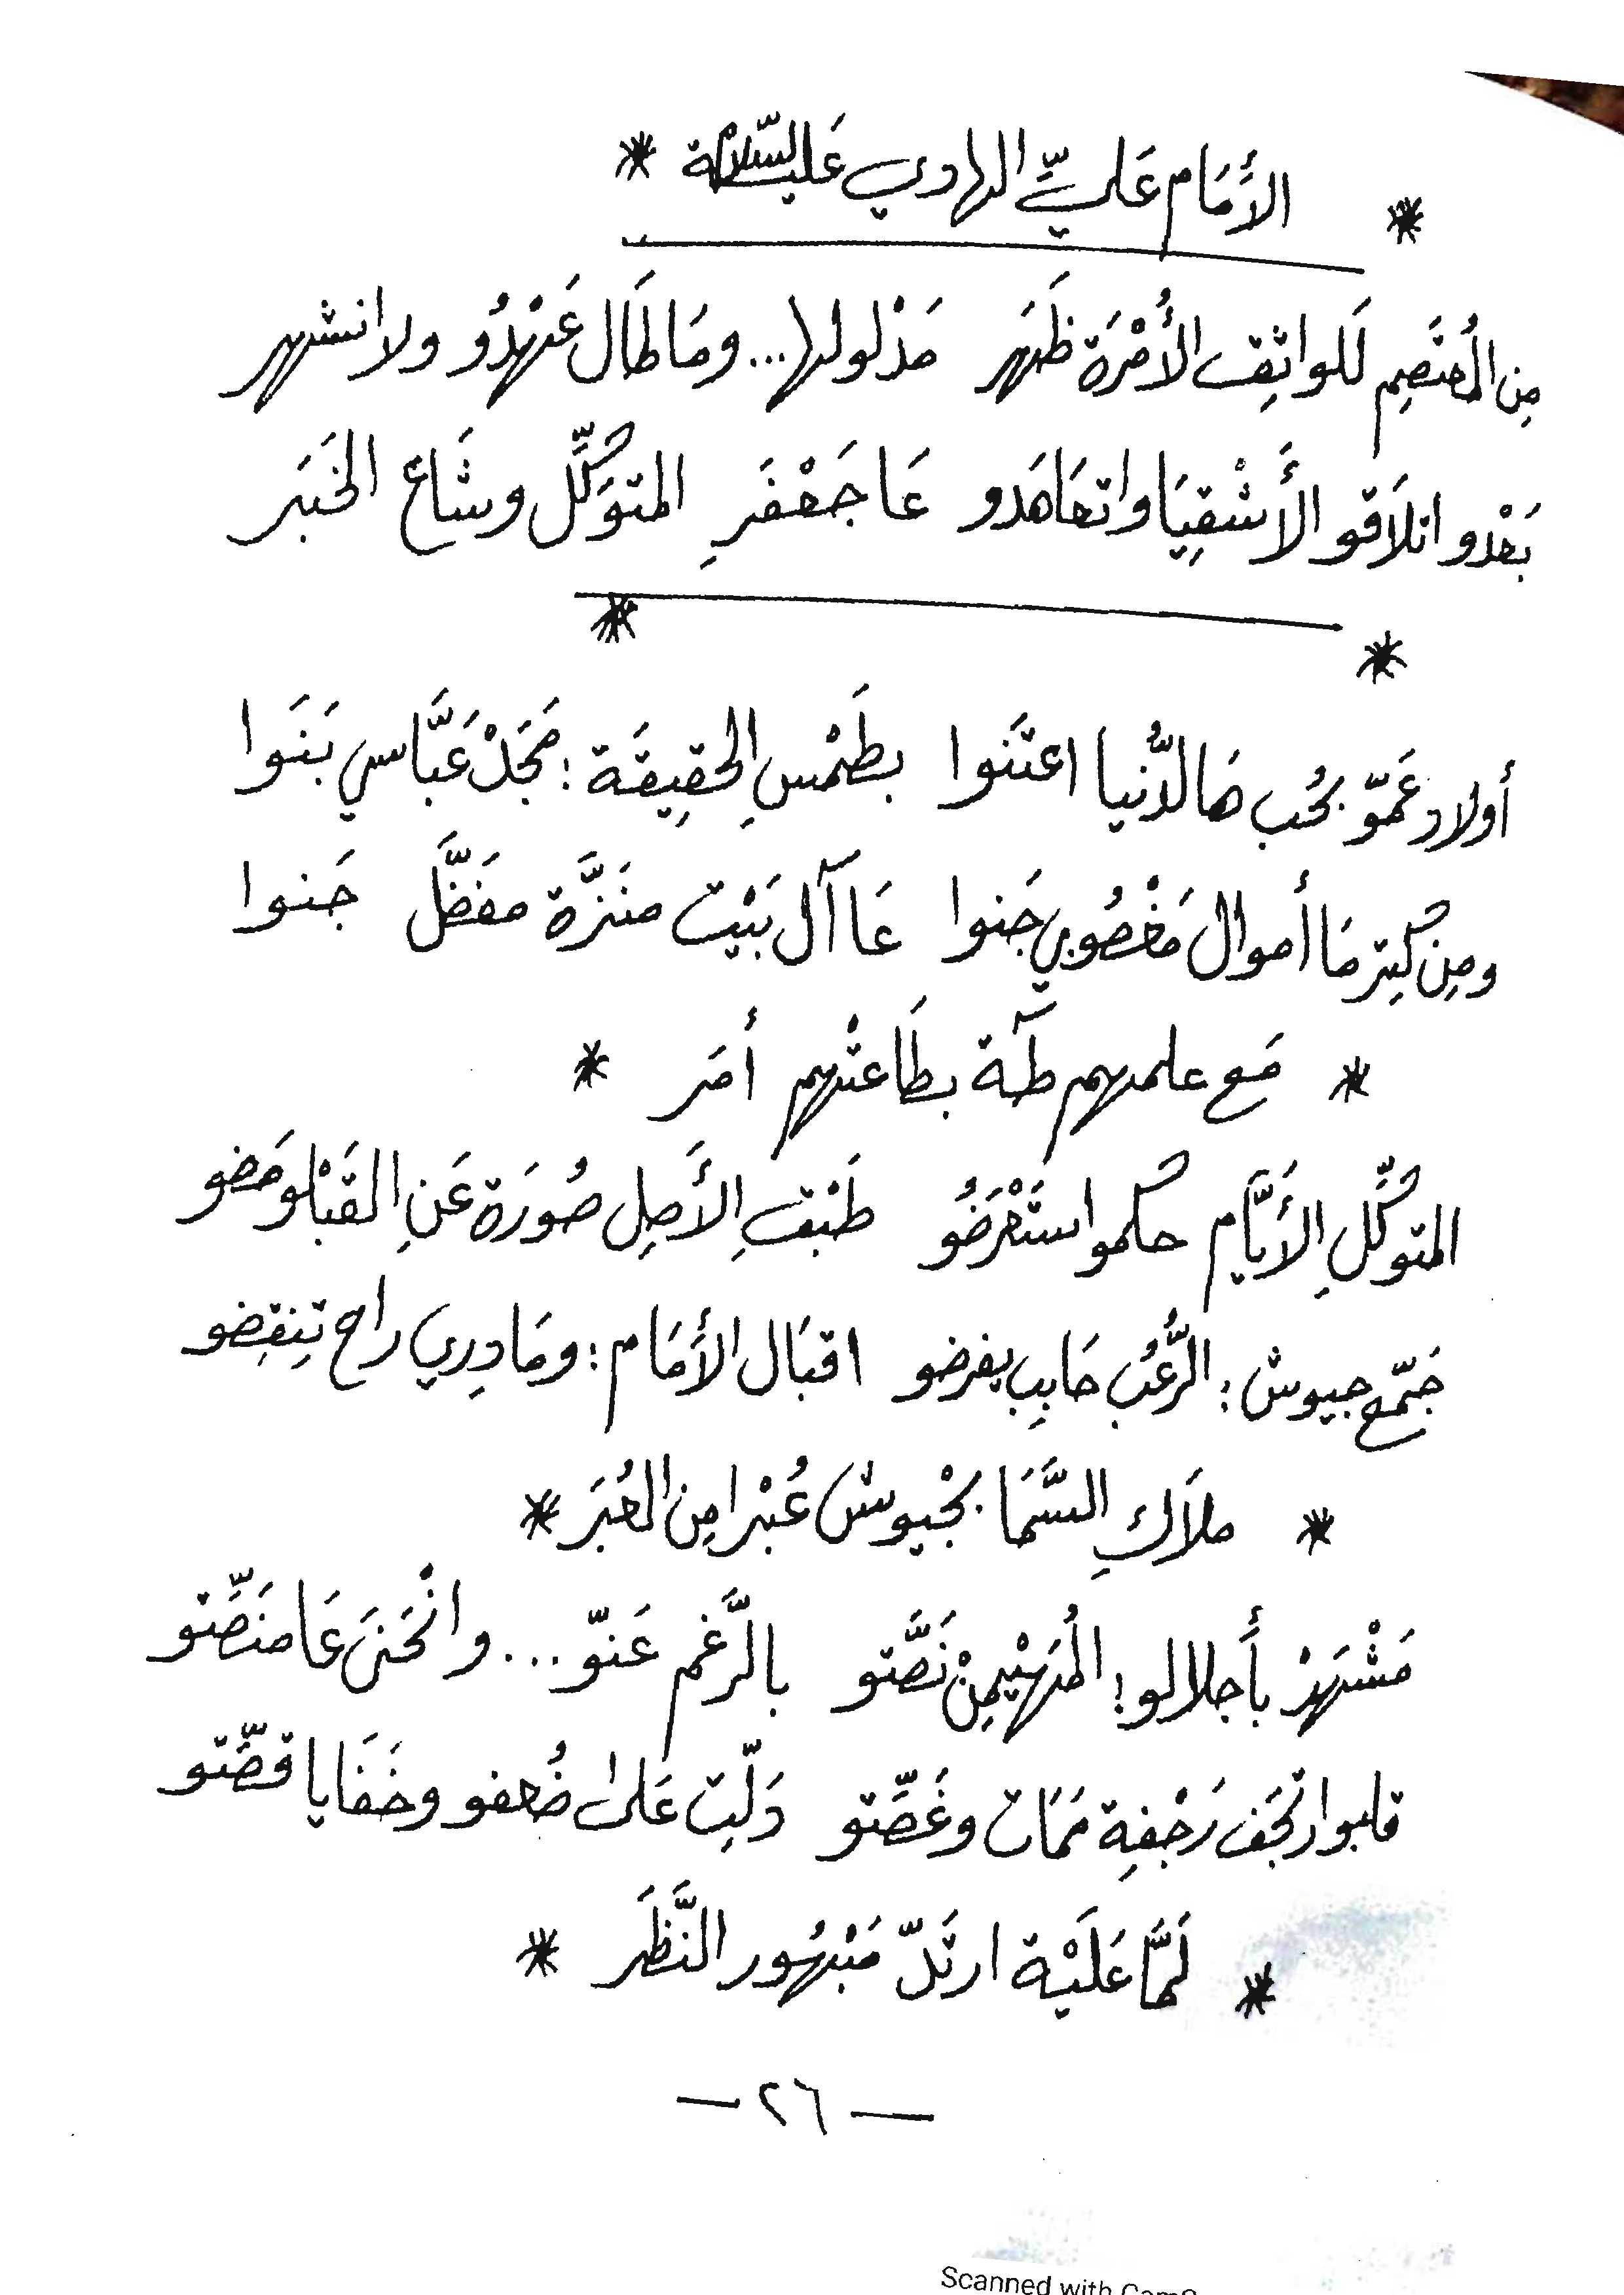 * الأَمَام عَليِّ الهادي عَليه السّلام *
مِن المُعتَصِم لَلواثِق الأُمْرَة ظَهَر مَدْلولها... ومَا طَال عَهْدُو ولا انشهر
بَعْدو اتلاَقو الأَشْقِيَا واتعَاهَدو عَا جَعْفَرِ المتوَكِّل وشَاع الخَبَر
* *
أولاد عَمّو بحُب هَالدُّنيا اعتَنَوا بطَمْسِ الحقِيقَة : مَجَدْ عَبَّاسي بَنَوا
ومِن كِتر مَا أموال مَغْصُوبِي جَنوا عَا آل بَيْت منَزَّة مفَضَّل جَنوا
* مَع علمهم طـَة بطَاعتْهم أمَر *
المتوكِّلِ الأَيَّام حكمو استَعْرَضُو طَبْقِ الأَصِل صُورَة عَنِ القَبْلو مَضو
جَمّع جيوش : الرُّعْب حَابِب يفرضو اقبَال الأَمَام : ومَا دِرِي راح تِنقِضو
* ملاَكِ السَّمَا بجْيوش عُبْرا مِن العُبَر *
مَشْهَدْ بأَجلالو : المُهَيْمِنْ نَصَّتو بالرَّغم عَنّو... وانْحَنَى عَا منَصِّتو
قلبو ارتجَف رَجْفِة مَمَات وغَصِّتو دَلّيت عَلى ضُعفو وخَفَايا قصِّتو
* لَمَّا عَلَيْة ارتَدّ مَبْهُور النَّظَر *
— ٢٦ —
Scanned with